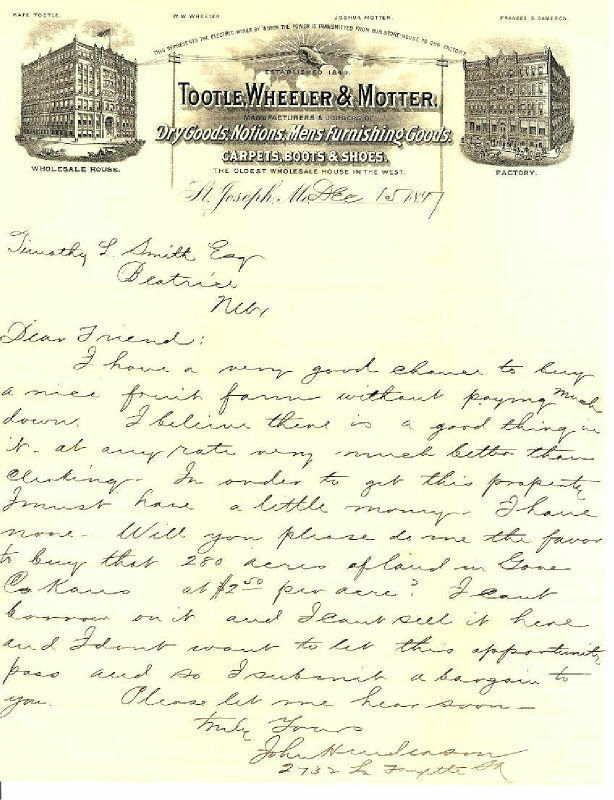 KATE TOOTLE. W.W. WHEELER. JOSHUA MOTTER. FRANCES S CAMERON.
THIS REPRESENTS THE ELECTRIC WIRES BY WHICH THE POWER IS TRANSMITTED FROM OUR STORE HOUSE TO OUR FACTORY.
ESTABLISHED 1849.
TOOTLE, WHEELER & MOTTER,
MANUFACTURERS & JOBBERS OF
Dry Goods, Notions, Mens Furnishing Goods,
CARPETS, BOOTS & SHOES.
THE OLDEST WHOLESALE HOUSE IN THE WEST.
WHOLESALE HOUSE.
FACTORY.
St. Joseph, Mo. Dec 15 1897
Timothy L. Smith Esq
Beatrice
Neb,
Dear Friend:
I have a very good chance to buy
a nice fruit farm without paying much
down. I believe there is a good thing in
it - at any rate very much better than
clerking - In order to get this property
I must have a little money. I have
none. Will you please do me the favor
to buy that 280 acres of land in Gove
Co Kans at $2.50 per acre? I cant
borrow on it and I cant sell it here
and I dont want to let this opportunity
pass and so I submit a bargain to
you. Please let me hear soon -
Truly Yours
John Henderson
2732 La Fayette St